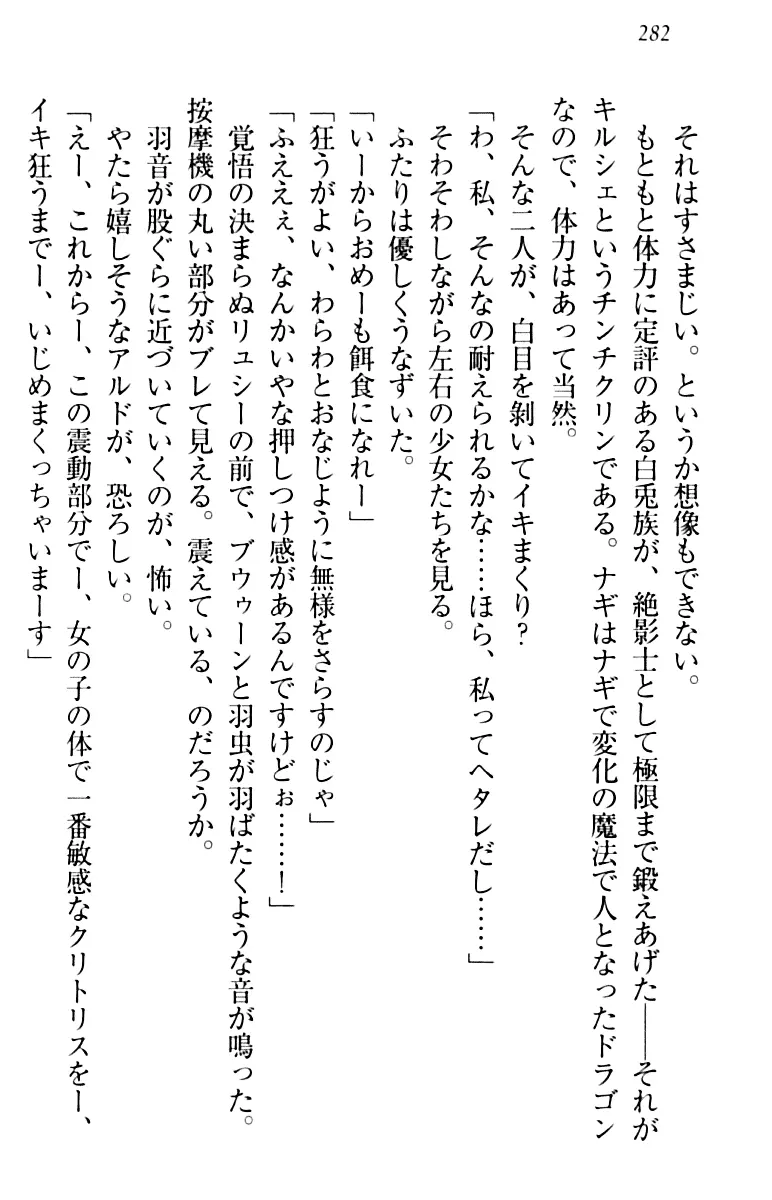 282
それはすさまじい。というか想像もできない。
もともと体力に定評のある白兎族が、絶影士として極限まで鍛えあげた――それが
キルシェというチンチクリンである。ナギはナギで変化の魔法で人となったドラゴン
なので、体力はあって当然。
そんな二人が、白目を剝いてイキまくり？
「わ、私、そんなの耐えられるかな……ほら、私ってヘタレだし……」
そわそわしながら左右の少女たちを見る。
ふたりは優しくうなずいた。
「いーからおめーも餌食になれー」
「狂うがよい、わらわとおなじように無様をさらすのじゃ」
「ふえぇぇ、なんかいやな押しつけ感があるんですけどぉ……！」
覚悟の決まらぬリュシーの前で、ブウゥーンと羽虫が羽ばたくような音が鳴った。
按摩機の丸い部分がブレて見える。震えている、のだろうか。
羽音が股ぐらに近づいていくのが、怖い。
やたら嬉しそうなアルドが、恐ろしい。
「えー、これからー、この震動部分でー、女の子の体で一番敏感なクリトリスをー、
イキ狂うまでー、いじめまくっちゃいまーす」